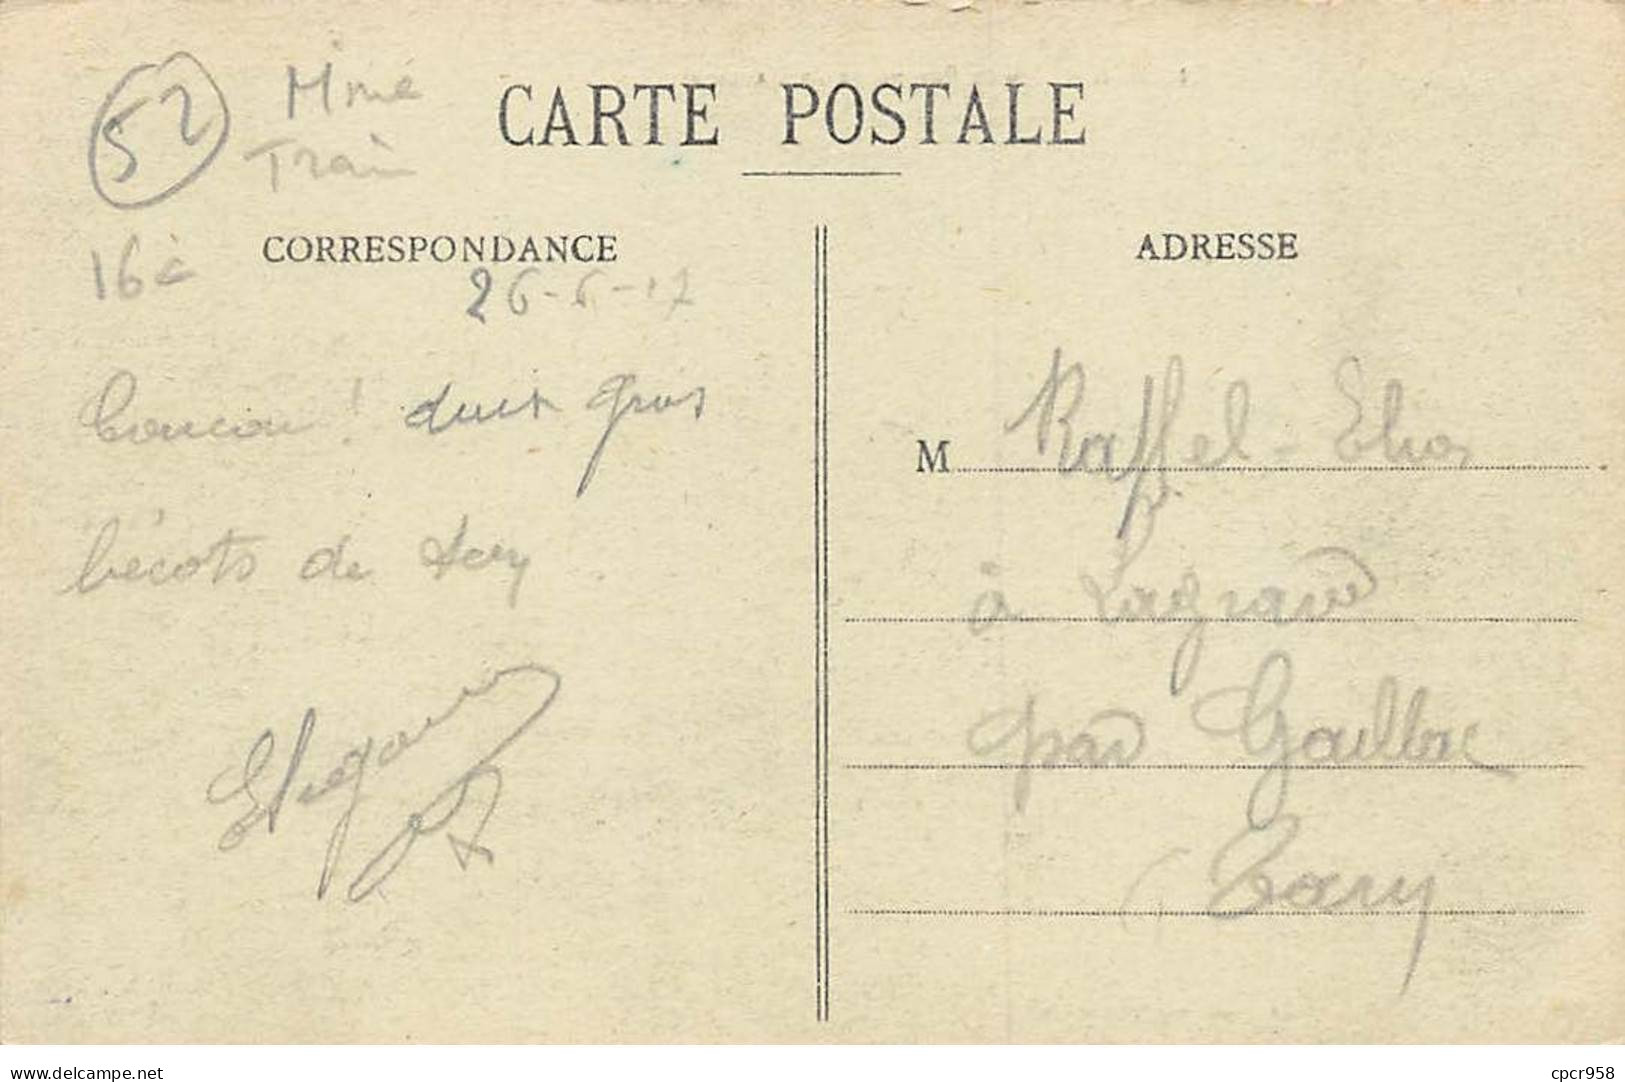 52
Mme
Train
CARTE POSTALE
16
CORRESPONDANCE
26-6-17
Coucou ! gros
bécots de
ADRESSE
M Raffel-
à Lagrave
par Gaillac
Tarn
delcampe.net
cpcr958